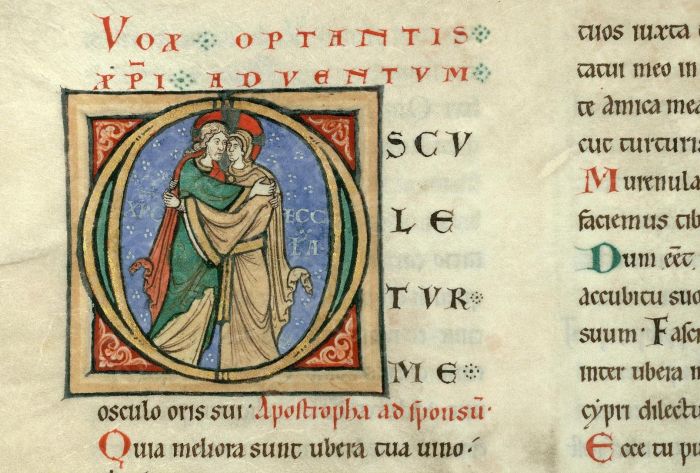 VOX OPTANTIS
XP̄I ADVENTVM
OSCV
LE
TVR
ME
XPC
ECC
osculo oris sui· Apostropha ad sponsū·
Quia meliora sunt ubera tua uino·
tuos iuxta
tatui meo in
te Amica mea
cut turturis
Murenula
faciemus tib
Dum eēt
accubitu suo
suum· Fasci
inter ubera m
cypri dilectu
Ecce tu pu